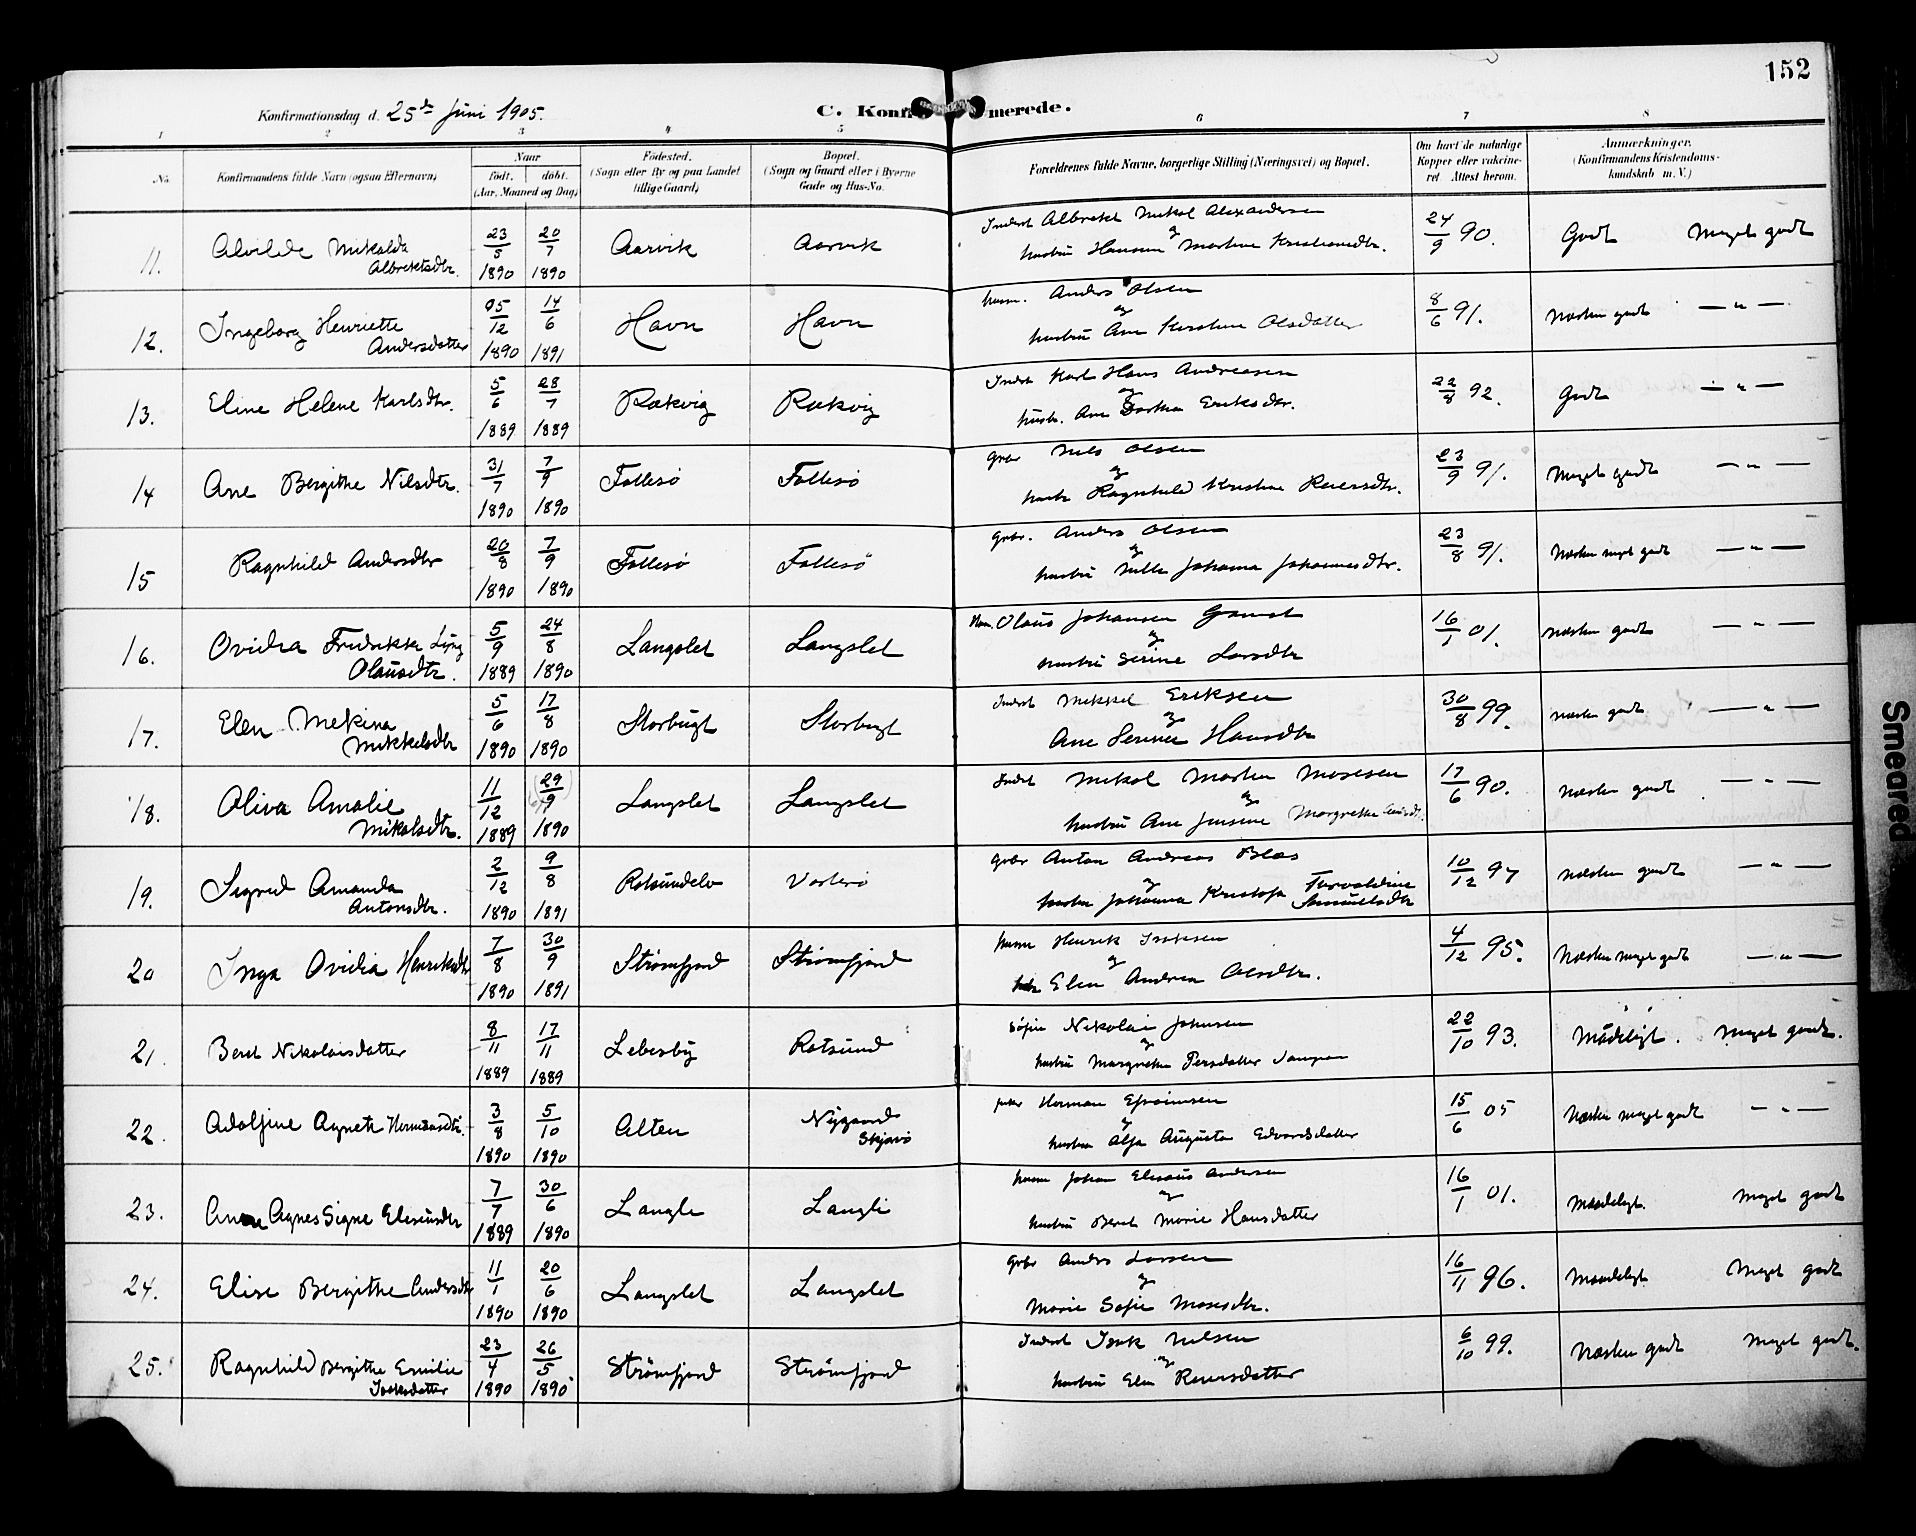 152
Konfirmationsdag d. 25de Juni 1905.
C. Konfirmerede.
1 2 3 4 5 6 7 8
No. Konfirmandens fulde Navn (ogsaa Efternavn) Naar født. døbt. (Aar, Maaned og Dag) Fødested. (Sogn eller By og paa Landet tillige Gaard) Bopæl. (Sogn og Gaard eller i Byerne Gade og Hus-No. Forældrenes fulde Navne, borgerlige Stilling (Næringsvei) og Bopæl. Om havt de naturlige Kopper eller vakcineret Attest herom. Anmærkninger. (Konfirmandens Kristendomskundskab m. V.)
11. Alvilde Mikalda Albrektsdtr. 23/5 1890 20/7 1890 Aarvik Aarvik Inderst Albrekt Mikal Alexandersen og hustru Hansine Martine Kristiansdtr. 24/9 90. Godt Meget godt
12. Ingeborg Henriette Andersdatter 25/12 1890 14/6 1891 Havn Havn husm. Anders Olsen og hustru Ane Kirstine Olsdatter 8/6 91. Næsten godt — " —
13. Eline Helene Karlsdtr. 5/6 1889 28/7 1889 Rakvig Rakvig Inderst Karl Hans Andreasen og hustr. Ane Dorthea Eriksdtr. 22/8 92. Godt — " —
14 Ane Bergithe Nilsdtr. 31/7 1890 7/9 1890 Follesø Follesø gbr Nils Olsen og hustr Ragnhild Kristine Reiersdtr. 23/9 91. Meget godt — " —
15 Ragnhild Andersdtr 20/8 1890 7/9 1890 Follesø Follesø gbr. Anders Olsen og hustru Nille Johanna Johannesdtr. 23/8 91. Næsten meget godt — " —
16. Ovidia Fredrikke Lyng Olausdtr. 5/9 1889 24/8 1890 Langslet Langslet Hm. Olaus Johansen Gamst og hustru Serine Larsdtr 16/1 01. Næsten godt — " —
17. Elen Mekina Mikkelsdtr 5/6 1890 17/8 1890 Storbugt Storbugt Inderst Mikkel Eriksen og Ane Serine Hansdtr 30/8 99. Næsten godt — " —
18. Oliva Amalie Mikalsdtr. 11/12 1889 (29/9) 1890 Langslet Langslet Inderst Mikal Morten Mosesen og hustru Ane Jensine Margrethe 17/6 90. Næsten godt — " —
19. Sigrid Amanda Antonsdtr. 2/12 1890 9/8 1891 Rotsundelv Vorterø gbr Anton Andreas Blæs og hustru Johanna Kristofa Torvaldine Samuelsdtr 10/12 97 Næsten godt — " —
20 Inga Ovidia Henriksdtr 7/8 1890 30/9 1891 Strømfjord Strømfjord husm Henrik Isaksen og Elen Andrea Olsdtr. 4/12 95. Næsten meget godt — " —
21. Beret Nikolaisdatter 8/11 1889 17/11 1889 Lebesby Rotsund Nikolai Johnsen og hustru Margrethe Persdatter 22/10 93. Mådeligt. Meget godt.
22. Adolfine Agnete Hermansdtr. 3/8 1890 5/10 1890 Alten Nygaard Skjærvø Herman Efraimsen og hustru Alfa Augusta Edvardsdatter 15/6 05 Næsten meget godt — " —
23. Anne Agnes Signe Eleseusdtr 7/7 1889 30/6 1890 Langli Langli husm Johan Eliseus Andersen og hustru Beret Marie Hansdatter 16/1 01. Maadeligt. Meget godt
24. Elise Bergithe Andersdtr 11/1 1890 20/6 1890 Langslet Langslet gbr Anders Larsen og Marie Sofie Mosesdtr. 16/11 96. Maadeligt Meget godt
25. Ragnhild Bergithe Emilie Isaksdatter 23/4 1890 26/5 1890 Strømfjord Strømfjord Inderst Isak Nilsen og hustru Elen Reiersdatter 6/10 99. Næsten godt Meget godt.
Smeared